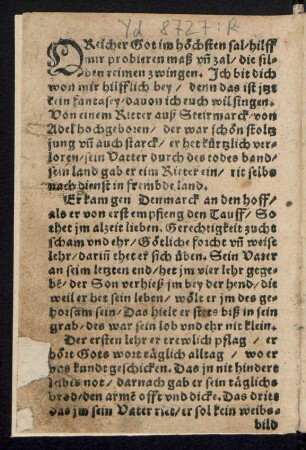 Yd 8727:R
O Reicher Got im höchsten sal/hilff
mir probieren maß vñ zal/die sil-
ben reimen zwingen. Ich bit dich
won mir hilfflich bey/denn das ist jtzt
kein fantasey/dauon ich euch wil singen.
Von einem Ritter auß Steirmarck/von
Adel hochgeboren/der war schön stoltz
jung vñ auch starck/er het kürtzlich ver-
loren/sein Vatter durch des todes band/
sein land gab er eim Ritter ein/rit selbs
nach dienst in frembde land.
Er kam gen Denmarck an den hoff/
als er von erst empfieng den Tauff/So
thet jm alzeit lieben. Gerechtigkeit zucht
scham vnd ehr/Götliche forcht vñ weise
lehr/dariñ thet er sich üben. Sein Vater
an seim letzten end/het jm vier lehr gege-
bē/der Son verhieß jm bey der hend/die
weil er het sein leben/wölt er jm des ge-
horsam sein/Das hielt er stets biß in sein
grab/des war sein lob vnd ehr nit klein.
Der ersten lehr er trewlich pflag/er
hört Gots wort täglich alltag/wo er
das kundt geschicken. Das jn nit hindert
leibis not/darnach gab er sein täglichs
brod/den armē offt vnd dicke. Das drits
das jm sein Vater riet/er sol kein weibs-
bild